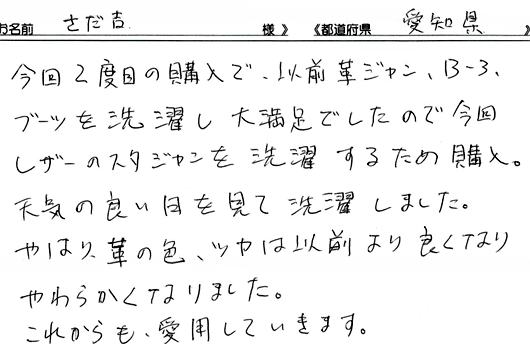 お名前 さだ吉 様 》 《都道府県 愛知県 》
今回2度目の購入で、以前革ジャン、B-3、
ブーツを洗濯し大満足でしたので今回
レザーのスタジャンを洗濯するため購入。
天気の良い日を見て洗濯しました。
やはり、革の色、ツヤは以前より良くなり
やわらかくなりました。
これからも、愛用していきます。